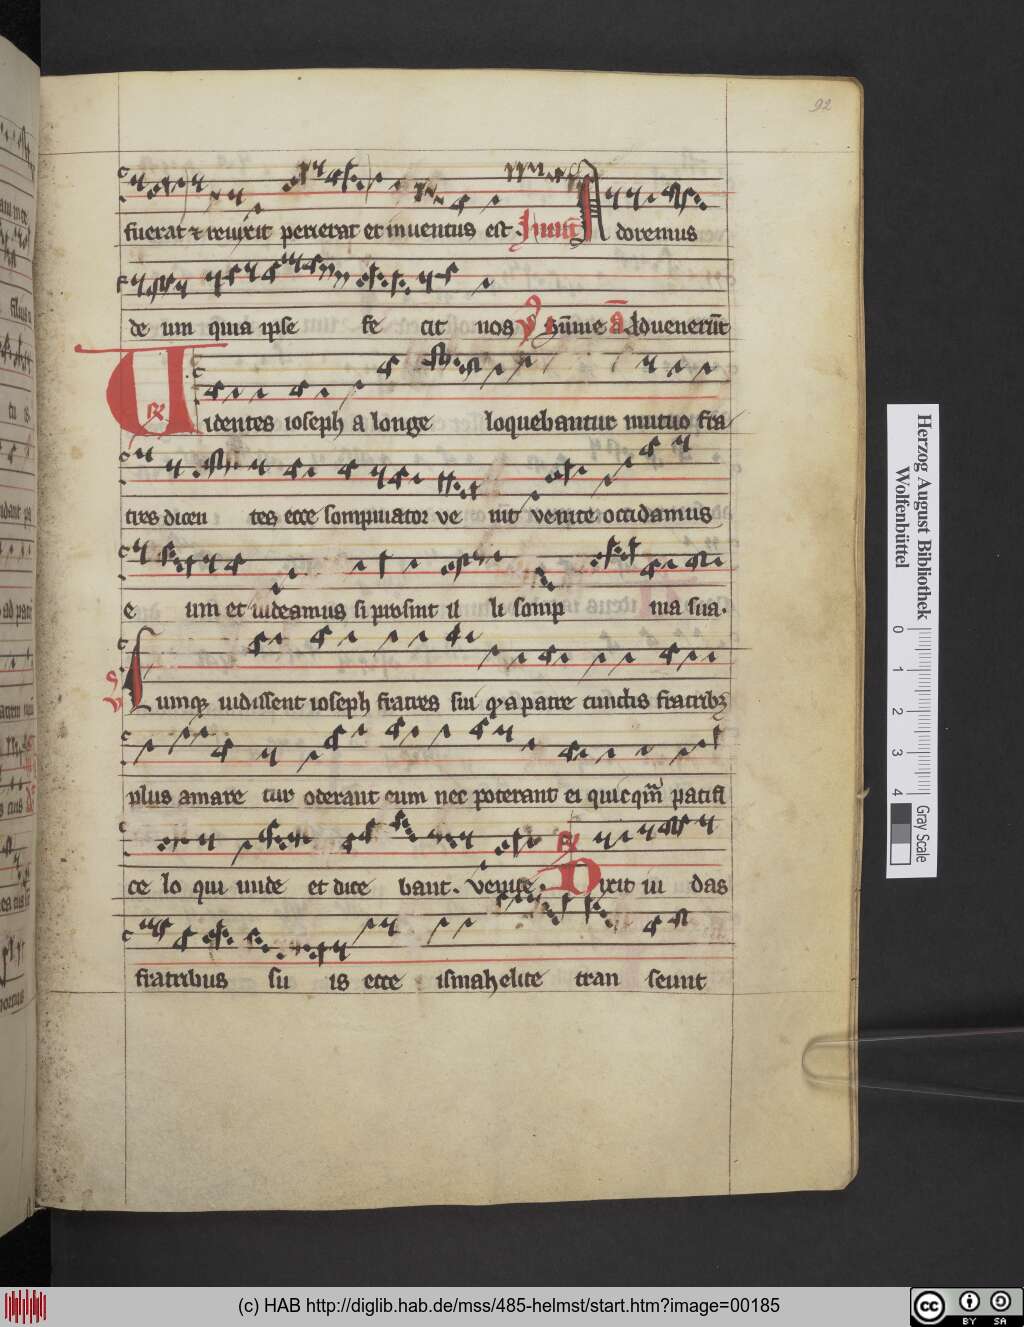 92
fuerat & reuixit perierat et inuentus est. Inuit Adoremus
de um quia ipse fe cit nos V Hūme A Aduenerūt
R Videntes ioseph a longe loquebantur mutuo fra
tres dicen tes ecce sompniator ve nit venite occidamus
e um et uideamus si prosint il li somp nia sua.
V Cumqz uidissent ioseph fratres sui qz a patre cunctis fratribz
plus amare tur oderant eum nec poterant ei quicqm̄ pacifi
ce lo qui unde et dice bant. venite. R Dixit iu das
fratribus su is ecce ismahelite tran seunt
Herzog August Bibliothek
Wolfenbüttel
0 1 2 3 4
Gray Scale
(c) HAB http://diglib.hab.de/mss/485-helmst/start.htm?image=00185
cc BY SA